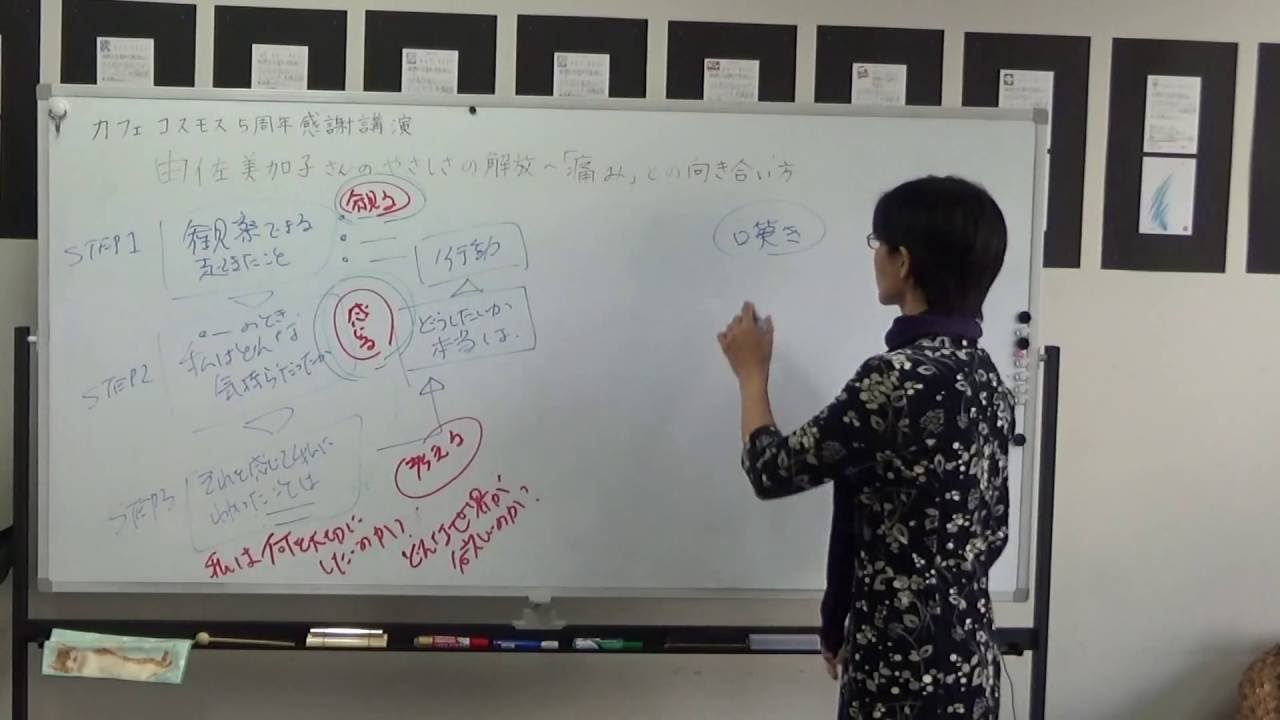 カフェ コスモス 5周年感謝講演
由佐美加子さんのやさしさの解放～「痛み」との向き合い方
STEP1
観察できる
起きたこと
観る
行動
STEP2
のとき
私はどんな
気持ちだったか
感じる
どうしたいか
本当は.
STEP3
それを感じて私に
わかったことは
考える
私は何を大切に
したいのか?
どんな世界が
欲しいのか?
口
き